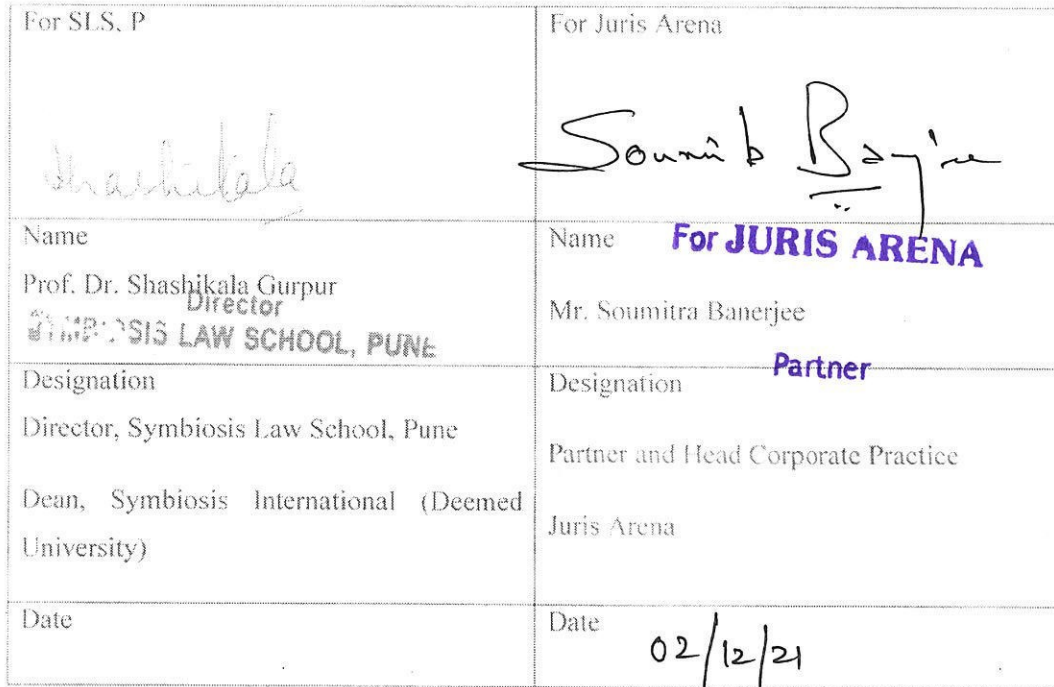 For SLS, P
For Juris Arena
Shashikala
Name
Prof. Dr. Shashikala Gurpur
Director
SYMBIOSIS LAW SCHOOL, PUNE
Name
For JURIS ARENA
Mr. Soumitra Banerjee
Partner
Designation
Director, Symbiosis Law School, Pune
Dean, Symbiosis International (Deemed
University)
Designation
Partner and Head Corporate Practice
Juris Arena
Date
Date
02/12/21